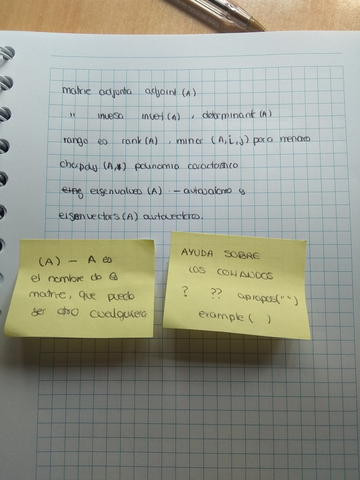 matriz adjunta adjoint(A)
" inversa invert(A), determinant(A)
rango es rank(A), minor (A,i,j) para menores
charpoly (A,x) polinomio característico
eigenvalues (A) - autovalores y
eigenvectors(A) autovectores.
(A) - A es
el nombre de la
matriz, que puede
ser otro cualquiera
AYUDA SOBRE
LOS COMANDOS
? ?? apropos("")
example( )